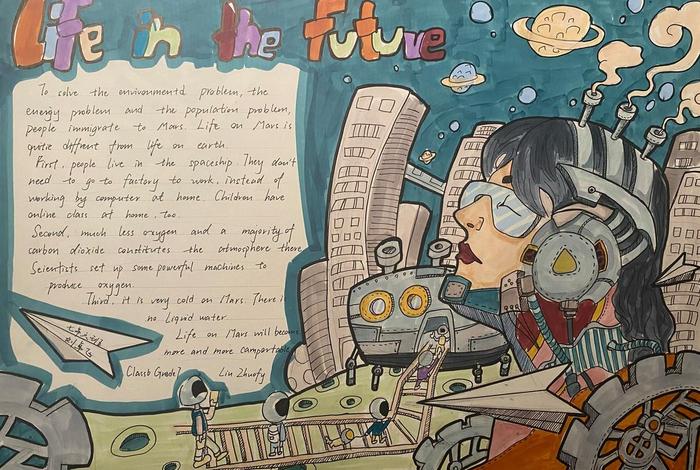 Life in the future
To solve the environmentd problem, the
energy problem and the population problem,
people immigrate to Mars. Life on Mars is
quite diffrent from life on earth.
First, people live in the spaceship. They don't
need to go to factory to work, instead of
working by computer at home. Children have
online class at home, too.
Second, much less oxygen and a majority of
carbon dioxide constitutes the atmosphere there.
Scientists set up some powerful machines to
produce oxygen.
Third, it is very cold on Mars. There i
no liquid water.
Life on Mars will become
more and more comportable
Class6 Grade7 Lin Zhuofy